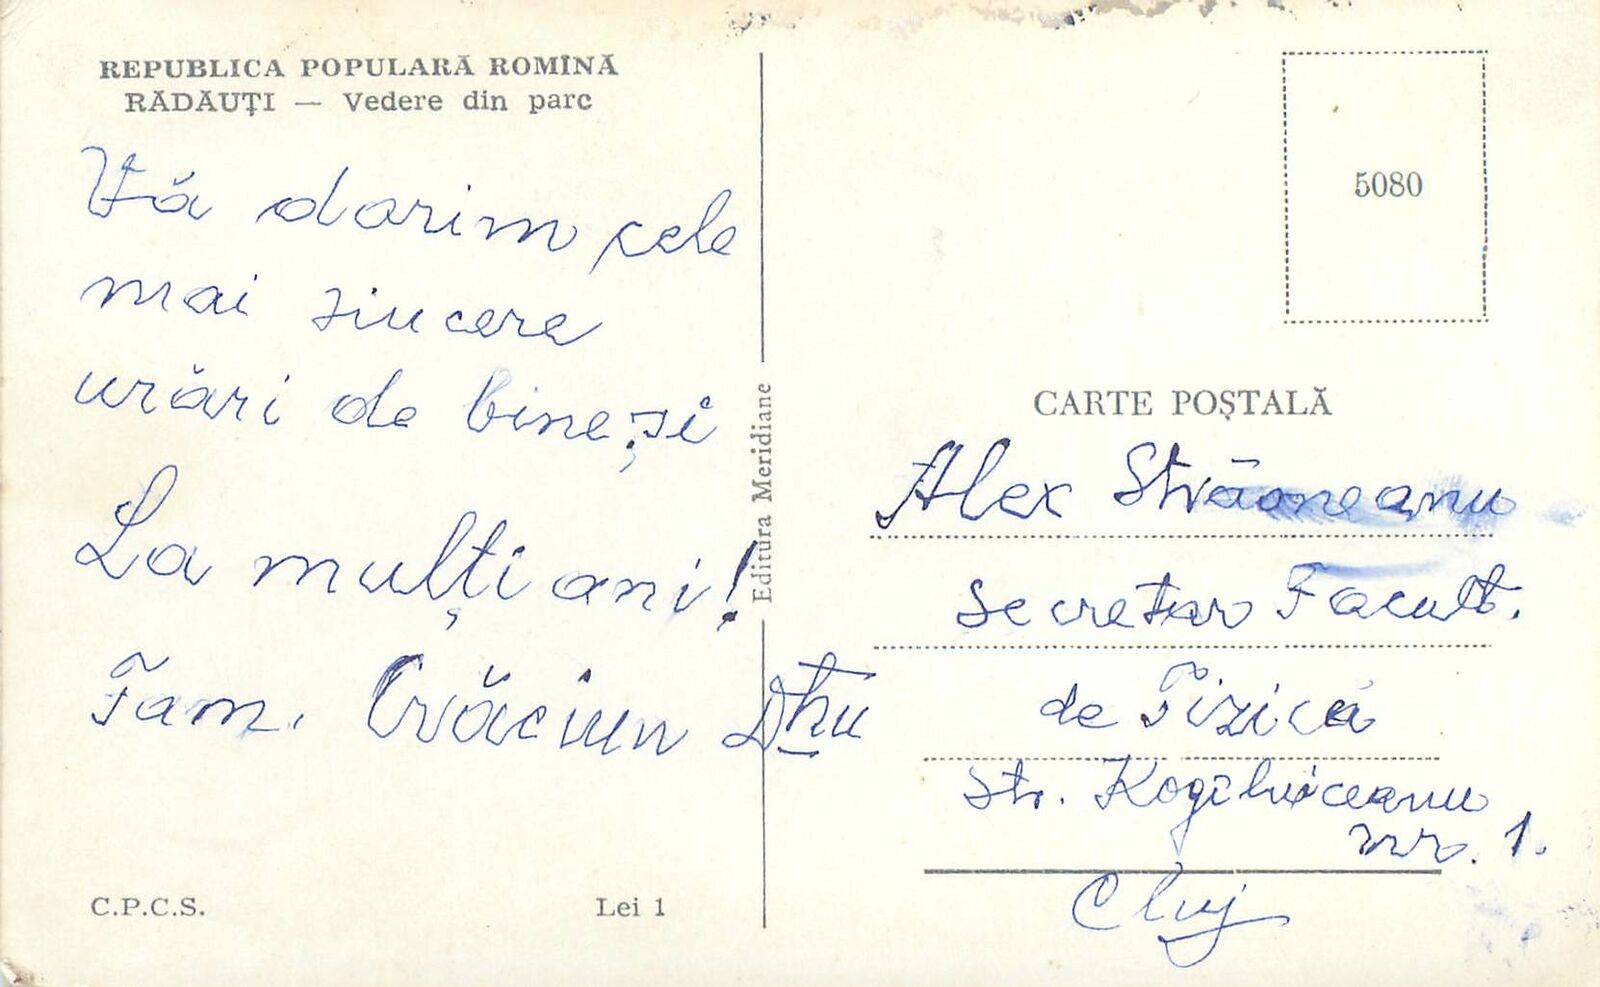 REPUBLICA POPULARĂ ROMÎNĂ
RĂDĂUȚI — Vedere din parc
Vă dorim cele
mai sincere
urări de bine și
La mulți ani!
Fam. Crăciun Dtru
C.P.C.S.
Lei 1
Editura Meridiane
5080
CARTE POȘTALĂ
Alex Străoneanu
secretar Facult.
de Fizică
str. Kogîlniceanu
nr. 1.
Cluj